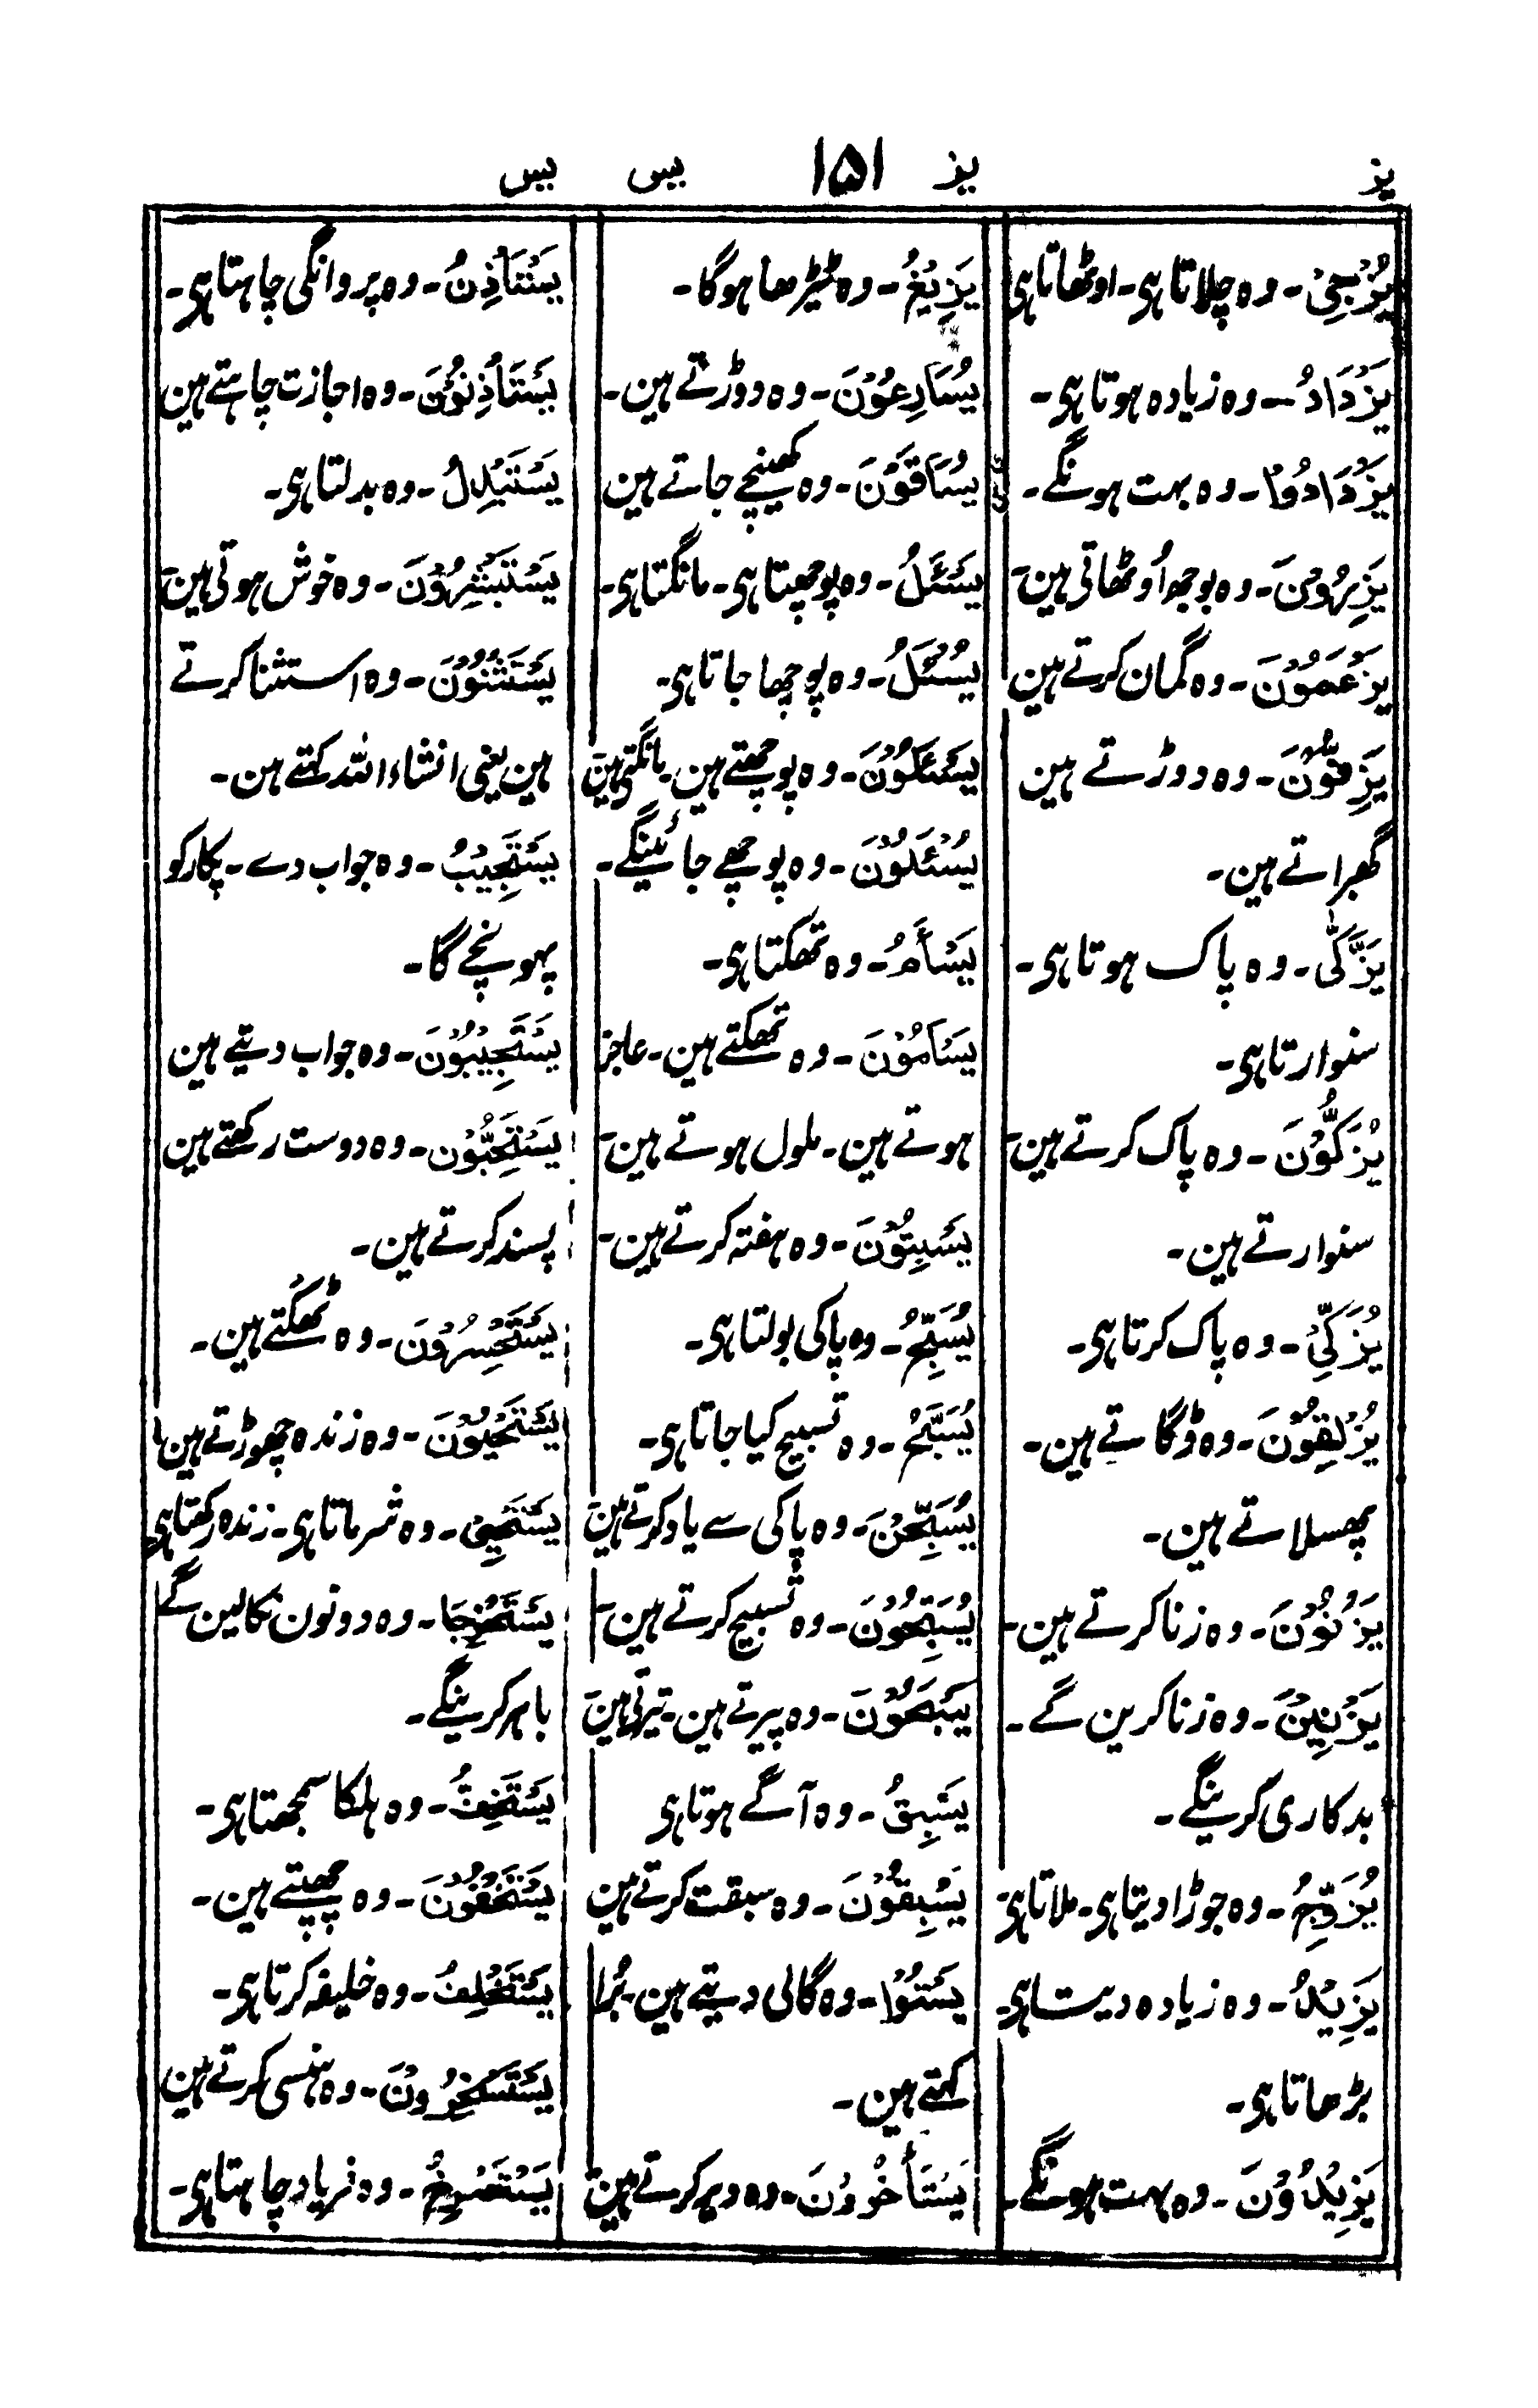 یز
یز
۱۵۱
یس
یس
یُزْجِیْ۔ وہ چلاتا ہی۔ اوٹھاتا ہی
یَزْدَادُ۔ وہ زیادہ ہوتا ہی۔
یَزْدَادُوْا۔ وہ بہت ہونگے۔
یَزِرُوْنَ۔ وہ بوجھ اُوٹھاتی ہین۔
یَزْعَمُوْنَ۔ وہ گمان کرتے ہین
یَزِفُّوْنَ۔ وہ دوڑتے ہین
گھبراتے ہین۔
یَزَّکّٰی۔ وہ پاک ہوتا ہی۔
سنوارتا ہی۔
یُزَکُّوْنَ۔ وہ پاک کرتے ہین۔
سنوارتے ہین۔
یُزَکِّیْ۔ وہ پاک کرتا ہی۔
یُزْلِقُوْنَ۔ وہ ڈگاتے ہین۔
پھسلاتے ہین۔
یَزْنُوْنَ۔ وہ زنا کرتے ہین۔
یَزْنِیْنَ۔ وہ زنا کرین گے۔
بدکاری کرینگے۔
یُزَوِّجُ۔ وہ جوڑا دیتا ہی۔ ملاتا ہی۔
یَزِیْدُ۔ وہ زیادہ دیتا ہی۔
بڑھاتا ہی۔
یَزِیْدُوْنَ۔ وہ بہت ہونگے۔
یَزِیْغُ۔ وہ ٹیڑھا ہوگا۔
یُسَارِعُوْنَ۔ وہ دوڑتے ہین۔
یُسَاقُوْنَ۔ وہ کھینچے جاتے ہین
یَسْئَلُ۔ وہ پوچھتا ہی۔ مانگتا ہی۔
یُسْئَلُ۔ وہ پوچھا جاتا ہی۔
یَسْئَلُوْنَ۔ وہ پوچھتے ہین۔ مانگتی ہین۔
یُسْئَلُوْنَ۔ وہ پوچھے جائینگے۔
یَسْأَمُ۔ وہ تھکتا ہی۔
یَسْاَمُوْنَ۔ وہ تھکتے ہین۔ عاجز
ہوتے ہین۔ ملول ہوتے ہین۔
یَسْبِتُوْنَ۔ وہ ہفتہ کرتے ہین۔
یُسَبِّحُ۔ وہ پاکی بولتا ہی۔
یُسَبَّحُ۔ وہ تسبیح کیا جاتا ہی۔
یُسَبِّحْنَ۔ وہ پاکی سے یاد کرتے ہین
یُسَبِّحُوْنَ۔ وہ تسبیح کرتے ہین۔
یَسْبَحُوْنَ۔ وہ پیرتے ہین۔ تیرتی ہین۔
یَسْبِقُ۔ وہ آگے ہوتا ہی
یَسْبِقُوْنَ۔ وہ سبقت کرتے ہین
یَسُبُّوْا۔ وہ گالی دیتے ہین۔ بُرا
کہتے ہین۔
یَسْتَأْخِرُوْنَ۔ وہ دیر کرتے ہین۔
یَسْتَاْذِنُ۔ وہ پروانگی چاہتا ہی۔
یَسْتَاْذِنُوْنَ۔ وہ اجازت چاہتے ہین
یَسْتَبْدِلُ۔ وہ بدلتا ہی۔
یَسْتَبْشِرُوْنَ۔ وہ خوش ہوتی ہین۔
یَسْتَثْنُوْنَ۔ وہ استثنا کرتے
ہین یعنی انشاء اللہ کہتے ہین۔
یَسْتَجِیْبُ۔ وہ جواب دے۔ پکار کو
پہونچے گا۔
یَسْتَجِیْبُوْنَ۔ وہ جواب دیتے ہین
یَسْتَحِبُّوْنَ۔ وہ دوست رکھتے ہین
پسند کرتے ہین۔
یَسْتَحْسِرُوْنَ۔ وہ تھکتے ہین۔
یَسْتَحْیُوْنَ۔ وہ زندہ چھوڑتے ہین
یَسْتَحْیِیْ۔ وہ شرماتا ہی۔ زندہ رکھتا ہی
یَسْتَخْرِجَا۔ وہ دونون نکالین گے
باہر کرینگے۔
یَسْتَخِفُّ۔ وہ ہلکا سمجھتا ہی۔
یَسْتَخْفُوْنَ۔ وہ چھپتے ہین۔
یَسْتَخْلِفُ۔ وہ خلیفہ کرتا ہی۔
یَسْتَسْخِرُوْنَ۔ وہ ہنسی کرتے ہین
یَسْتَصْرِخُ۔ وہ فریاد چاہتا ہی۔